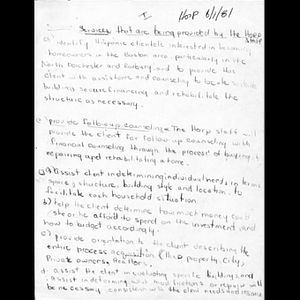 I HOPP 6/1/81
Services that are being provided by the HOPP Staff
a) identify Hispanic clientele interested in becoming
homeowners in the Boston area, particularly in the
North Dorchester and Roxbury and to provide this
client with assistance and counseling to locate suitable
building, secure financing and rehabilitate the
structure as necessary.
provide follow-up counseling - The HOPP staff will
provide the client for follow up counseling with
financial counseling through the process of buying,
repairing and rehabilitating a home.
a) Assist client in determining individual needs in terms
space, structure, building style and location, to
facilitate each household situation.
b) help the client determine how much money could
s/he or he afford to spend on the investment and
how to budget according.
c) provide orientation to the client describing the
entire process acquisition (HUD property, City,
Private owners, Realtors.
d) assist the client in evaluating specific buildings and
assist in determining what modifications or repair will
be necessary, consistent with the client needs and income